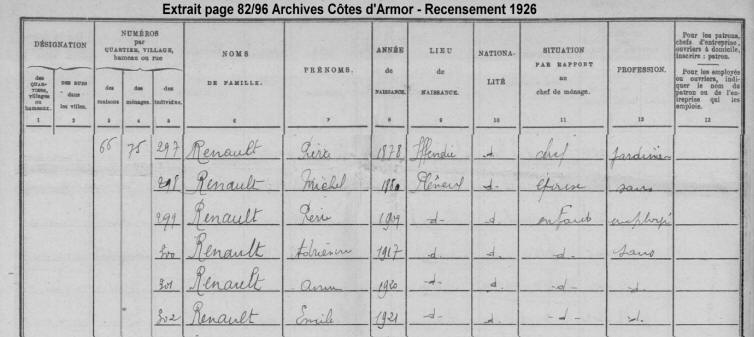 Extrait page 82/96 Archives Côtes d'Armor - Recensement 1926
DÉSIGNATION
NUMÉROS
par
QUARTIER, VILLAGE,
hameau ou rue
NOMS
DE FAMILLE.
PRÉNOMS.
ANNÉE
de
NAISSANCE.
LIEU
de
NAISSANCE.
NATIONA-
LITÉ
SITUATION
PAR RAPPORT
au
chef de ménage.
PROFESSION.
Pour les patrons,
chefs d'entreprise,
ouvriers à domicile,
inscrire : patron.
Pour les employés
ou ouvriers, indi-
quer le nom du
patron ou de l'en-
treprise qui les
emploie.
des
QUAR-
TIERS,
villages
ou
hameaux.
DES RUES
dans
les villes.
des
maisons
des
ménages.
des
individus.
1 2 3 4 5 6 7 8 9 10 11 12 13
66 75 297 Renault 1878 d. chef jardinier
298 Renault Michel 1880 d. épouse sans
299 Renault 1909 -d- d. enfant employé
300 Renault 1917 d. d. -d- sans
301 Renault 1920 -d- d. -d- d.
302 Renault Emile 1921 -d- d. -d- d.